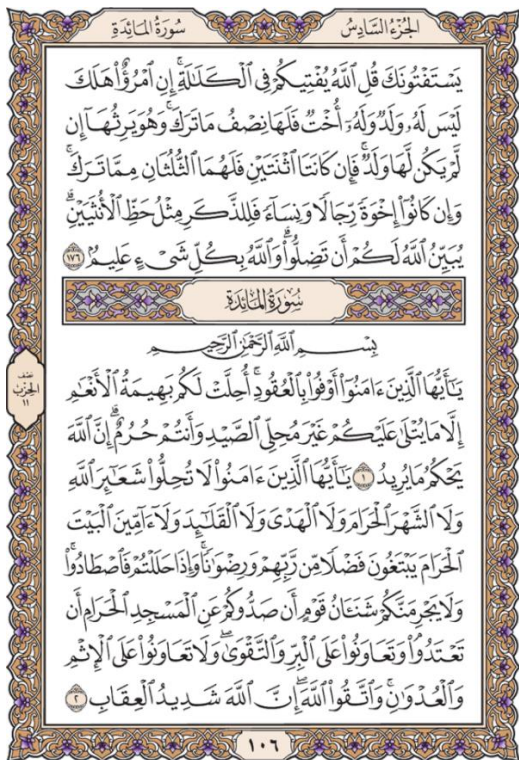 الجُزْءُ السَّادِسُ
سُورَةُ المَائِدَةِ
يَسْتَفْتُونَكَ قُلِ ٱللَّهُ يُفْتِيكُمْ فِى ٱلْكَلَٰلَةِۚ إِنِ ٱمْرُؤٌا۟ هَلَكَ
لَيْسَ لَهُۥ وَلَدٌ وَلَهُۥٓ أُخْتٌ فَلَهَا نِصْفُ مَا تَرَكَۚ وَهُوَ يَرِثُهَآ إِن
لَّمْ يَكُن لَّهَا وَلَدٌۚ فَإِن كَانَتَا ٱثْنَتَيْنِ فَلَهُمَا ٱلثُّلُثَانِ مِمَّا تَرَكَۚ
وَإِن كَانُوٓا۟ إِخْوَةً رِّجَالًا وَنِسَآءً فَلِلذَّكَرِ مِثْلُ حَظِّ ٱلْأُنثَيَيْنِۗ
يُبَيِّنُ ٱللَّهُ لَكُمْ أَن تَضِلُّوا۟ۗ وَٱللَّهُ بِكُلِّ شَىْءٍ عَلِيمٌۢ ١٧٦
سُورَةُ المَائِدَةِ
بِسْمِ ٱللَّهِ ٱلرَّحْمَٰنِ ٱلرَّحِيمِ
يَٰٓأَيُّهَا ٱلَّذِينَ ءَامَنُوٓا۟ أَوْفُوا۟ بِٱلْعُقُودِۚ أُحِلَّتْ لَكُم بَهِيمَةُ ٱلْأَنْعَٰمِ
إِلَّا مَا يُتْلَىٰ عَلَيْكُمْ غَيْرَ مُحِلِّى ٱلصَّيْدِ وَأَنتُمْ حُرُمٌۗ إِنَّ ٱللَّهَ
يَحْكُمُ مَا يُرِيدُ ١ يَٰٓأَيُّهَا ٱلَّذِينَ ءَامَنُوا۟ لَا تُحِلُّوا۟ شَعَٰٓئِرَ ٱللَّهِ
وَلَا ٱلشَّهْرَ ٱلْحَرَامَ وَلَا ٱلْهَدْىَ وَلَا ٱلْقَلَٰٓئِدَ وَلَآ ءَآمِّينَ ٱلْبَيْتَ
ٱلْحَرَامَ يَبْتَغُونَ فَضْلًا مِّن رَّبِّهِمْ وَرِضْوَٰنًاۚ وَإِذَا حَلَلْتُمْ فَٱصْطَادُوا۟ۚ
وَلَا يَجْرِمَنَّكُمْ شَنَـَٔانُ قَوْمٍ أَن صَدُّوكُمْ عَنِ ٱلْمَسْجِدِ ٱلْحَرَامِ أَن
تَعْتَدُوا۟ۘ وَتَعَاوَنُوا۟ عَلَى ٱلْبِرِّ وَٱلتَّقْوَىٰۖ وَلَا تَعَاوَنُوا۟ عَلَى ٱلْإِثْمِ
وَٱلْعُدْوَٰنِۚ وَٱتَّقُوا۟ ٱللَّهَۖ إِنَّ ٱللَّهَ شَدِيدُ ٱلْعِقَابِ ٢
نصف
الحزب
١١
١٠٦